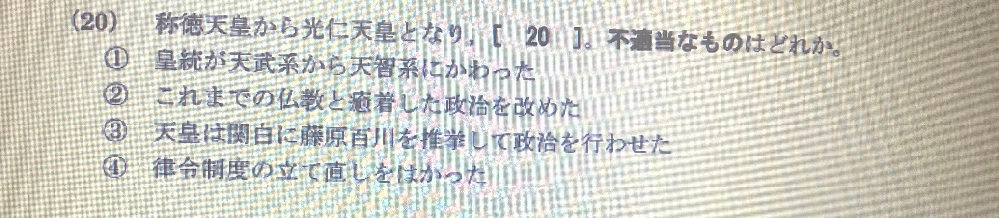 (20) 称徳天皇から光仁天皇となり，[ 20 ]。不適当なものはどれか。
① 皇統が天武系から天智系にかわった
② これまでの仏教と癒着した政治を改めた
③ 天皇は関白に藤原百川を推挙して政治を行わせた
④ 律令制度の立て直しをはかった